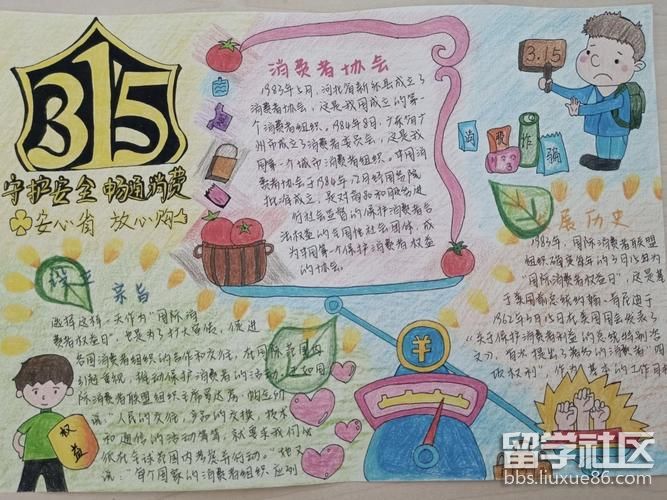 315
守护安全 畅通消费
安心省 放心购
消费者协会
1983年5月,河北省新乐县成立了
消费者协会,这是我国成立的第一
个消费者组织。1984年8月,广东省广
州市成立了消费者委员会,这是我
国第一个城市消费者组织。中国消
费者协会于1984年12月经国务院
批准成立,是对商品和服务进
行社会监督的保护消费者合
法权益的全国性社会团体,成
为中国第一个保护消费者权益
的协会。
3.15
消费诈骗
展历史
1983年,国际消费者联盟
组织确定每年的3月15日为
"国际消费者权益日",这是基
于美国前总统约翰·肯尼迪于
1962年3月15日在美国国会发表了
《关于保护消费者利益的总统特别咨
文》,首次提出了著名的消费者"四
项权利",作为基本的工作目标
宗旨
选择这样一天作为"国际消
费者权益日",也是为了扩大宣传,促进
各国消费者组织的合作和交往,在国际范围内
引起重视,推动保护消费者的活动。
际消费者联盟组织主席罗达·帕
说:"人民的交往,产品的交换,技术
和通信的活动等等,就要求我们必
须在全球范围内考虑并行动。"她又
说:"每个国家的消费者组织应到
权益
¥
留学社区
bbs.liuxue86.com